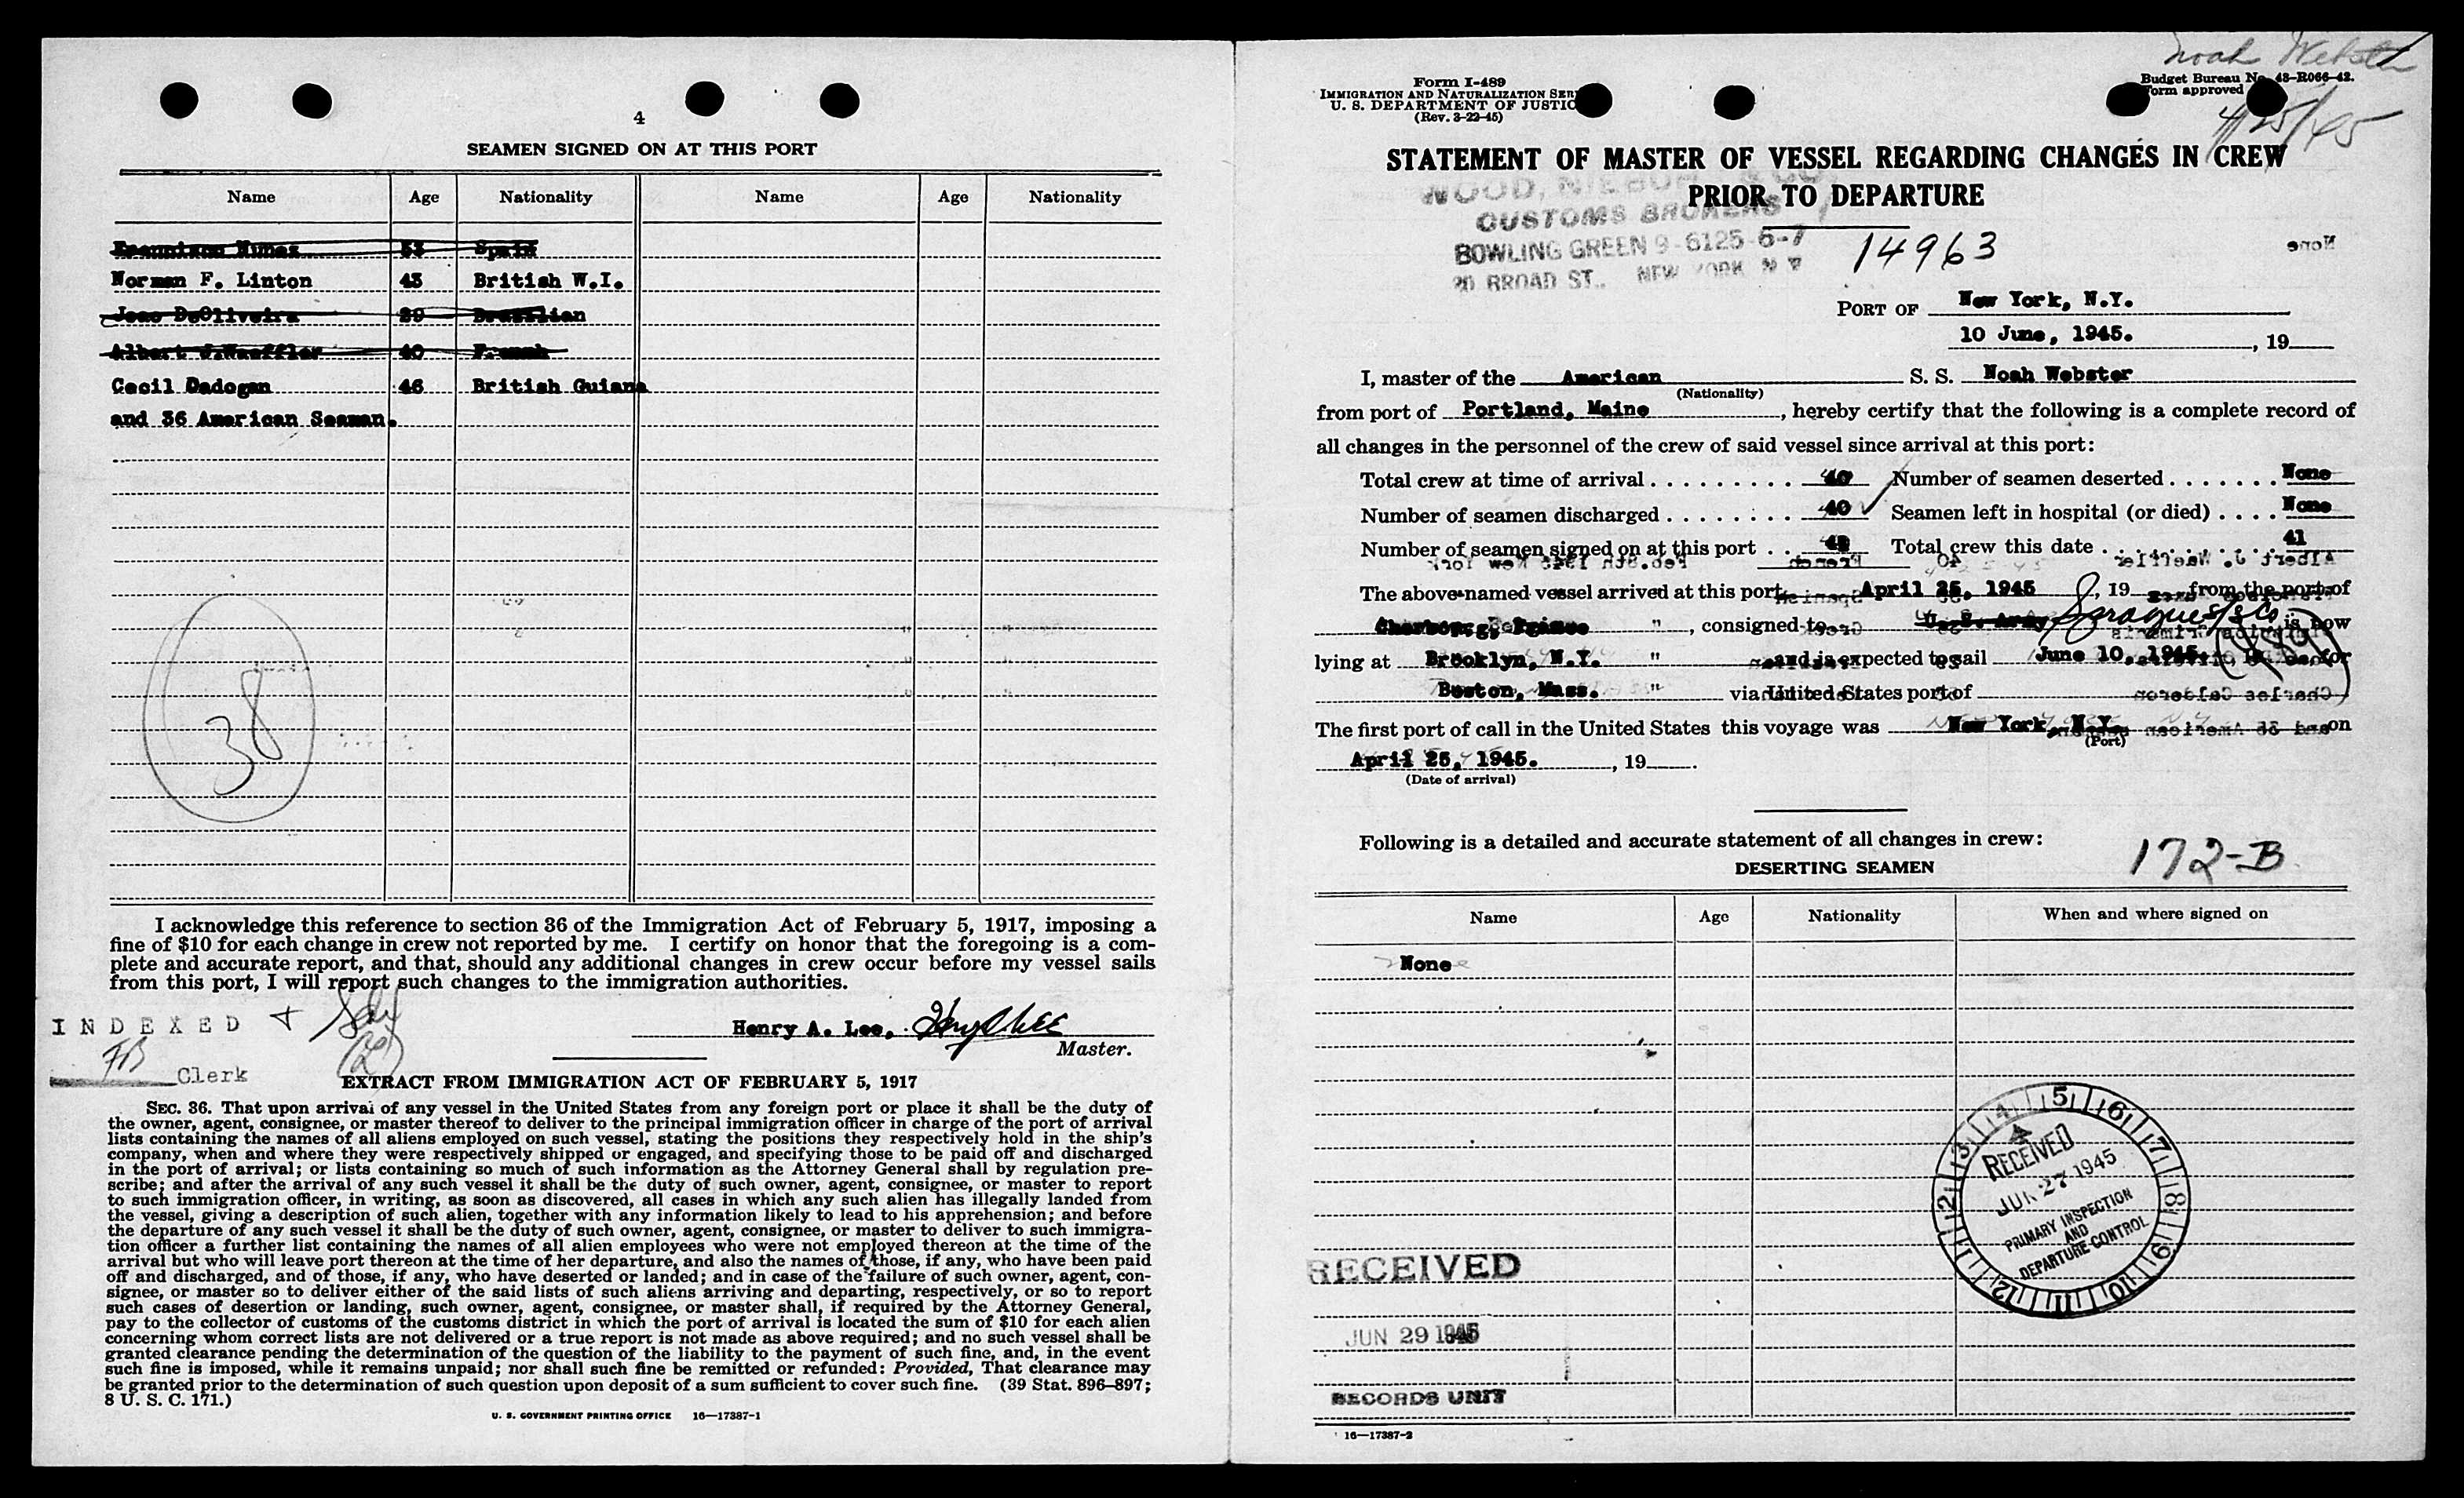 4
SEAMEN SIGNED ON AT THIS PORT
Name Age Nationality Name Age Nationality
Nunez 53 Spain
Norman F. Linton 43 British W.I.
Joao DeOliveira 29 Brazilian
Albert J.Waeffler 40 French
Cecil Dadogan 46 British Guiana
and 36 American Seaman.
38
I acknowledge this reference to section 36 of the Immigration Act of February 5, 1917, imposing a
fine of $10 for each change in crew not reported by me. I certify on honor that the foregoing is a com-
plete and accurate report, and that, should any additional changes in crew occur before my vessel sails
from this port, I will report such changes to the immigration authorities.
INDEXED
Henry A. Lee, Henry A Lee
Master.
FB Clerk
EXTRACT FROM IMMIGRATION ACT OF FEBRUARY 5, 1917
SEC. 36. That upon arrival of any vessel in the United States from any foreign port or place it shall be the duty of
the owner, agent, consignee, or master thereof to deliver to the principal immigration officer in charge of the port of arrival
lists containing the names of all aliens employed on such vessel, stating the positions they respectively hold in the ship's
company, when and where they were respectively shipped or engaged, and specifying those to be paid off and discharged
in the port of arrival; or lists containing so much of such information as the Attorney General shall by regulation pre-
scribe; and after the arrival of any such vessel it shall be the duty of such owner, agent, consignee, or master to report
to such immigration officer, in writing, as soon as discovered, all cases in which any such alien has illegally landed from
the vessel, giving a description of such alien, together with any information likely to lead to his apprehension; and before
the departure of any such vessel it shall be the duty of such owner, agent, consignee, or master to deliver to such immigra-
tion officer a further list containing the names of all alien employees who were not employed thereon at the time of the
arrival but who will leave port thereon at the time of her departure, and also the names of those, if any, who have been paid
off and discharged, and of those, if any, who have deserted or landed; and in case of the failure of such owner, agent, con-
signee, or master so to deliver either of the said lists of such aliens arriving and departing, respectively, or so to report
such cases of desertion or landing, such owner, agent, consignee, or master shall, if required by the Attorney General,
pay to the collector of customs of the customs district in which the port of arrival is located the sum of $10 for each alien
concerning whom correct lists are not delivered or a true report is not made as above required; and no such vessel shall be
granted clearance pending the determination of the question of the liability to the payment of such fine, and, in the event
such fine is imposed, while it remains unpaid; nor shall such fine be remitted or refunded: Provided, That clearance may
be granted prior to the determination of such question upon deposit of a sum sufficient to cover such fine. (39 Stat. 896–897;
8 U. S. C. 171.)
U. S. GOVERNMENT PRINTING OFFICE 16—17387-1
Noah Webster
Form I-489
IMMIGRATION AND NATURALIZATION SER
U. S. DEPARTMENT OF JUSTIC
(Rev. 3-22-45)
Budget Bureau No. 43-R066-42.
Form approved
4/25/45
STATEMENT OF MASTER OF VESSEL REGARDING CHANGES IN CREW
PRIOR TO DEPARTURE
WOOD, & CO.
CUSTOMS BROKERS
BOWLING GREEN 9-6125-6-7
20 BROAD ST., NEW YORK N Y
14963
None
PORT OF New York, N.Y.
10 June, 1945. , 19
I, master of the American S. S. Noah Webster
(Nationality)
from port of Portland, Maine , hereby certify that the following is a complete record of
all changes in the personnel of the crew of said vessel since arrival at this port:
Total crew at time of arrival 40 Number of seamen deserted None
Number of seamen discharged 40 Seamen left in hospital (or died) None
Number of seamen signed on at this port Total crew this date 41
The above-named vessel arrived at this port April 25, 1945 , 19 from the port of
Cherbourg, France , consigned to U. S. Army Sprague & Co is now
lying at Brooklyn, N.Y. and is expected to sail June 10, 1945. for
Boston, Mass. via United States port of
The first port of call in the United States this voyage was New York, N.Y. on
(Port)
April 25, 1945. , 19 .
(Date of arrival)
Following is a detailed and accurate statement of all changes in crew:
172-B
DESERTING SEAMEN
Name Age Nationality When and where signed on
None
RECEIVED
JUN 27 1945
PRIMARY INSPECTION
AND
DEPARTURE CONTROL
1 2 3 4 5 6 7 8 9 10 11 12
RECEIVED
JUN 29 1945
RECORDS UNIT
16—17387-2